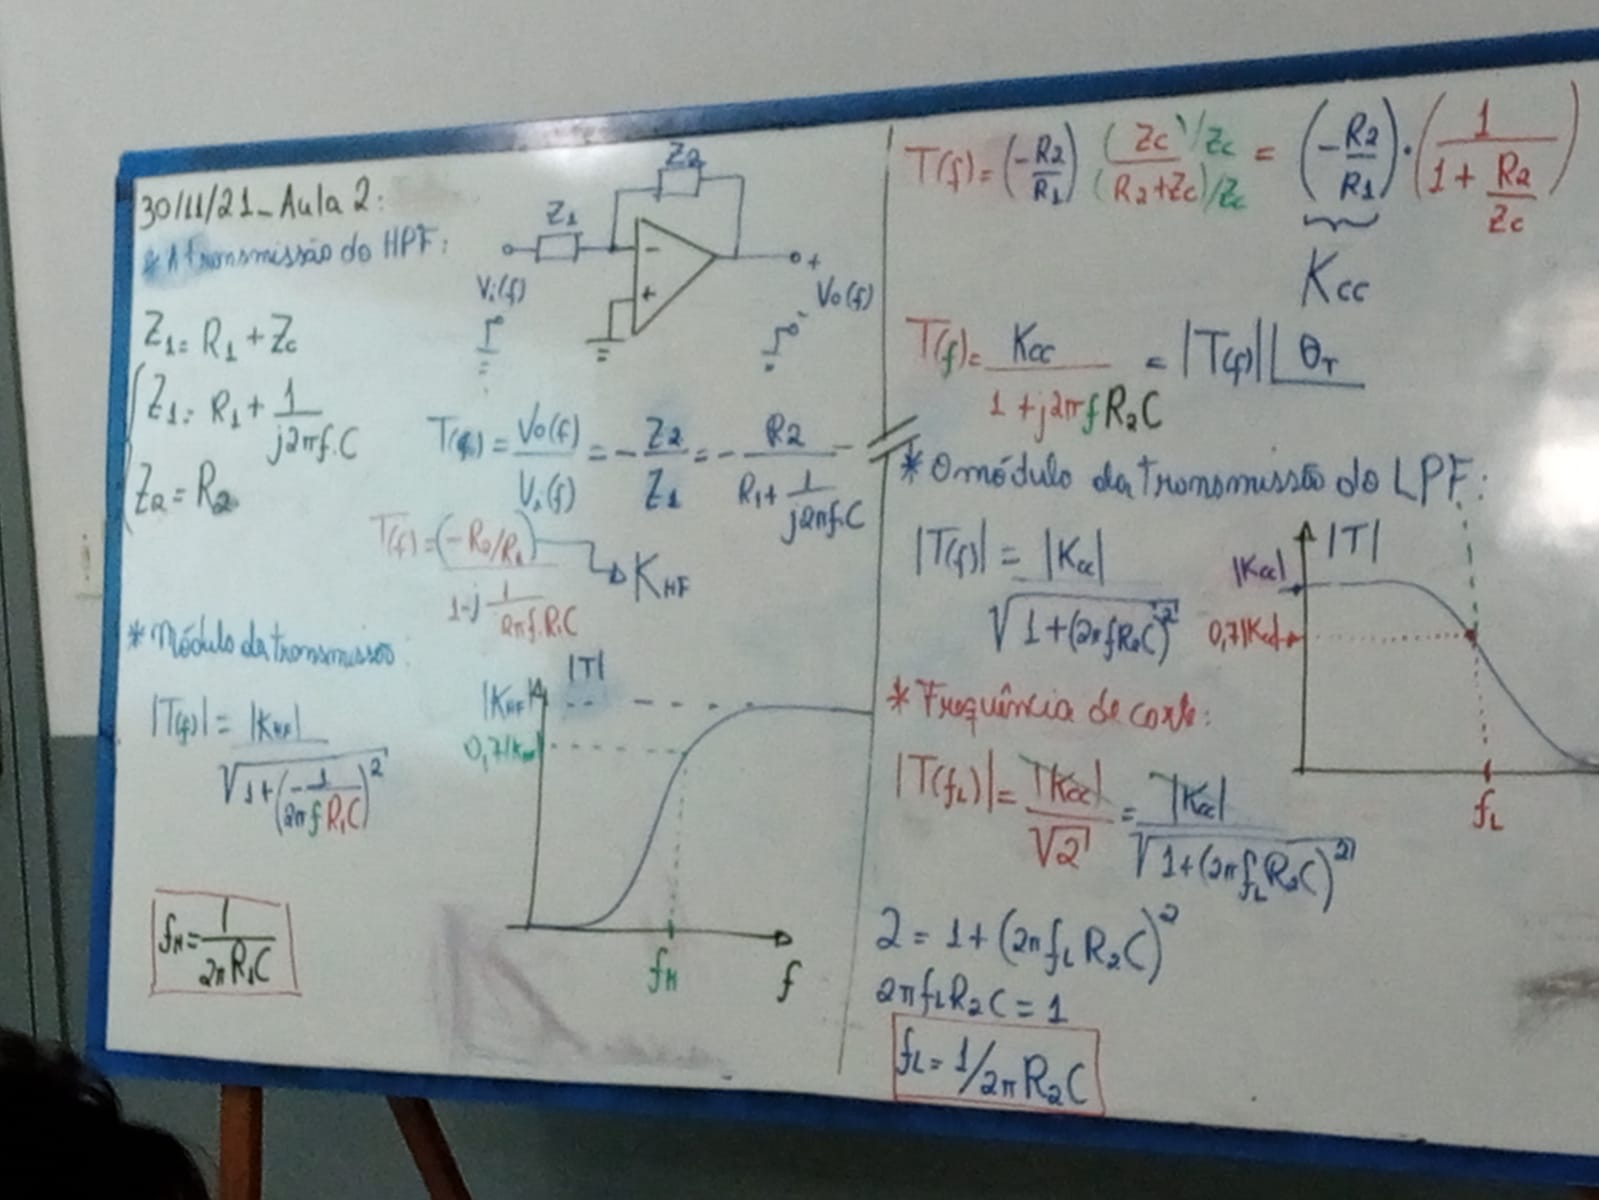 30/11/21_ Aula 2:
* A transmissão do HPF:
Z1 = R1 + Zc
Z1 = R1 + 1/(j2πf.C)
Z2 = R2
Z1
Z2
-
+
Vi(f)
+
Vo(f)
T(f) = Vo(f)/Vi(f) = - Z2/Z1 = - R2/(R1 + 1/(j2πf.C))
T(f) = (-R2/R1)/(1-j 1/(2πf.R1C)) → KHF
* Módulo da transmissão
|T(f)| = |KHF|/√(1+(-1/(2πf R1C))²)
fH = 1/(2πR1C)
|T|
|KHF|
0,7|KHF|
fH
f
T(f) = (-R2/R1) (Zc)/Zc/(R2+Zc)/Zc = (-R2/R1).(1/(1 + R2/Zc))
Kcc
T(f) = Kcc/(1 + j2πfR2C) = |T(f)|∠θT
* O módulo da transmissão do LPF:
|T(f)| = |Kcc|/√(1+(2πfR2C)²)
|T|
|Kcc|
0,7|Kcc|
fL
* Frequência de corte:
|T(fL)| = |Kcc|/√2 = |Kcc|/√(1+(2πfLR2C)²)
2 = 1 + (2πfL R2C)²
2πfLR2C = 1
fL = 1/2πR2C